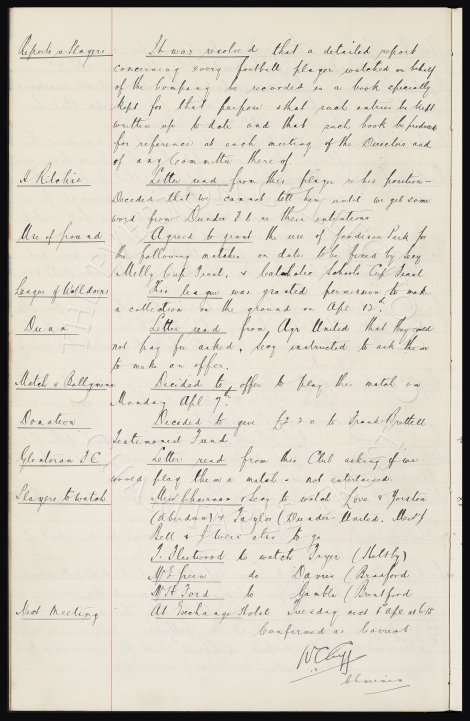 Reports v Players It was resolved that a detailed report
concerning every football player watched on behalf
of the Company be recorded in a book specially
kept for that purpose & that such entries be kept
written up to date and that such book be produced
for reference at each meeting of the Directors and
of any Committee thereof.
A Ritchie Letter read from this player re his position -
Decided that we cannot tell him until we get some
word from Dundee F C re their intentions
Use of Ground Agreed to grant the use of Goodison Park for
the following matches on date to be fixed by Secy
Melly Cup Final, & Catholic Schools Cup Final
League of Welldoers This league was granted permission to make
a collection on the ground on Apl 12th
Dunn Letter read from Ayr United that they could
not pay fee asked, Secy instructed to ask them
to make an offer.
Match v Ballymena Decided to offer to play this match on
Monday Apl 7th.
Donation Decided to give £2 2 0 to Frank Brettell
Testimonial Fund
Glentoran F C Letter read from this Club asking if we
would play them a match - not entertained.
Players to Watch Mess Chairman & Secy to watch Love & Yorston
(Aberdeen) & Taylor (Dundee United. Messrs
Bell & also to go
T. Fleetwood to watch Fryer (Helsby)
Mr E Green do Davies (Bradford
Mr H Ford to Gamble (Brentford
Next Meeting At Exchange Hotel Tuesday next 8 Apl at 6.15
Confirmed as Correct
W C Cuff
Chairman